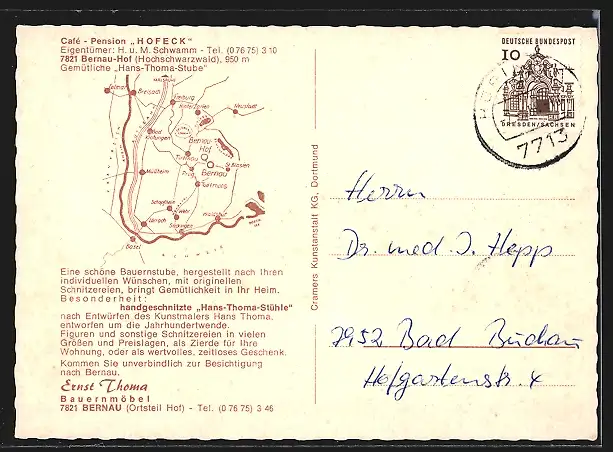 Café - Pension „HOFECK"
Eigentümer: H. u. M. Schwamm - Tel. (0 76 75) 3 10
7821 Bernau-Hof (Hochschwarzwald), 950 m
Gemütliche „Hans-Thoma-Stube"
Colmar
Breisach
Freiburg
Hinterzarten
Neustadt
Bad Krotzingen
Bernau Hof
Todtnau
Bernau
St. Blasien
Präg
Müllheim
Todtmoos
Schopfheim
Wehr
Lörrach
Säckingen
Waldshut
Basel
SCHWEIZ
Eine schöne Bauernstube, hergestellt nach Ihren
individuellen Wünschen, mit originellen
Schnitzereien, bringt Gemütlichkeit in Ihr Heim.
Besonderheit:
handgeschnitzte „Hans-Thoma-Stühle"
nach Entwürfen des Kunstmalers Hans Thoma,
entworfen um die Jahrhundertwende.
Figuren und sonstige Schnitzereien in vielen
Größen und Preislagen, als Zierde für Ihre
Wohnung, oder als wertvolles, zeitloses Geschenk.
Kommen Sie unverbindlich zur Besichtigung
nach Bernau.
Ernst Thoma
Bauernmöbel
7821 BERNAU (Ortsteil Hof) - Tel. (0 76 75) 3 46
Cramers Kunstanstalt KG, Dortmund
DEUTSCHE BUNDESPOST
10
DRESDEN/SACHSEN
7713
Herrn
Dr. med. J. Hepp
7952 Bad Buchau
Hofgartenstr. 4